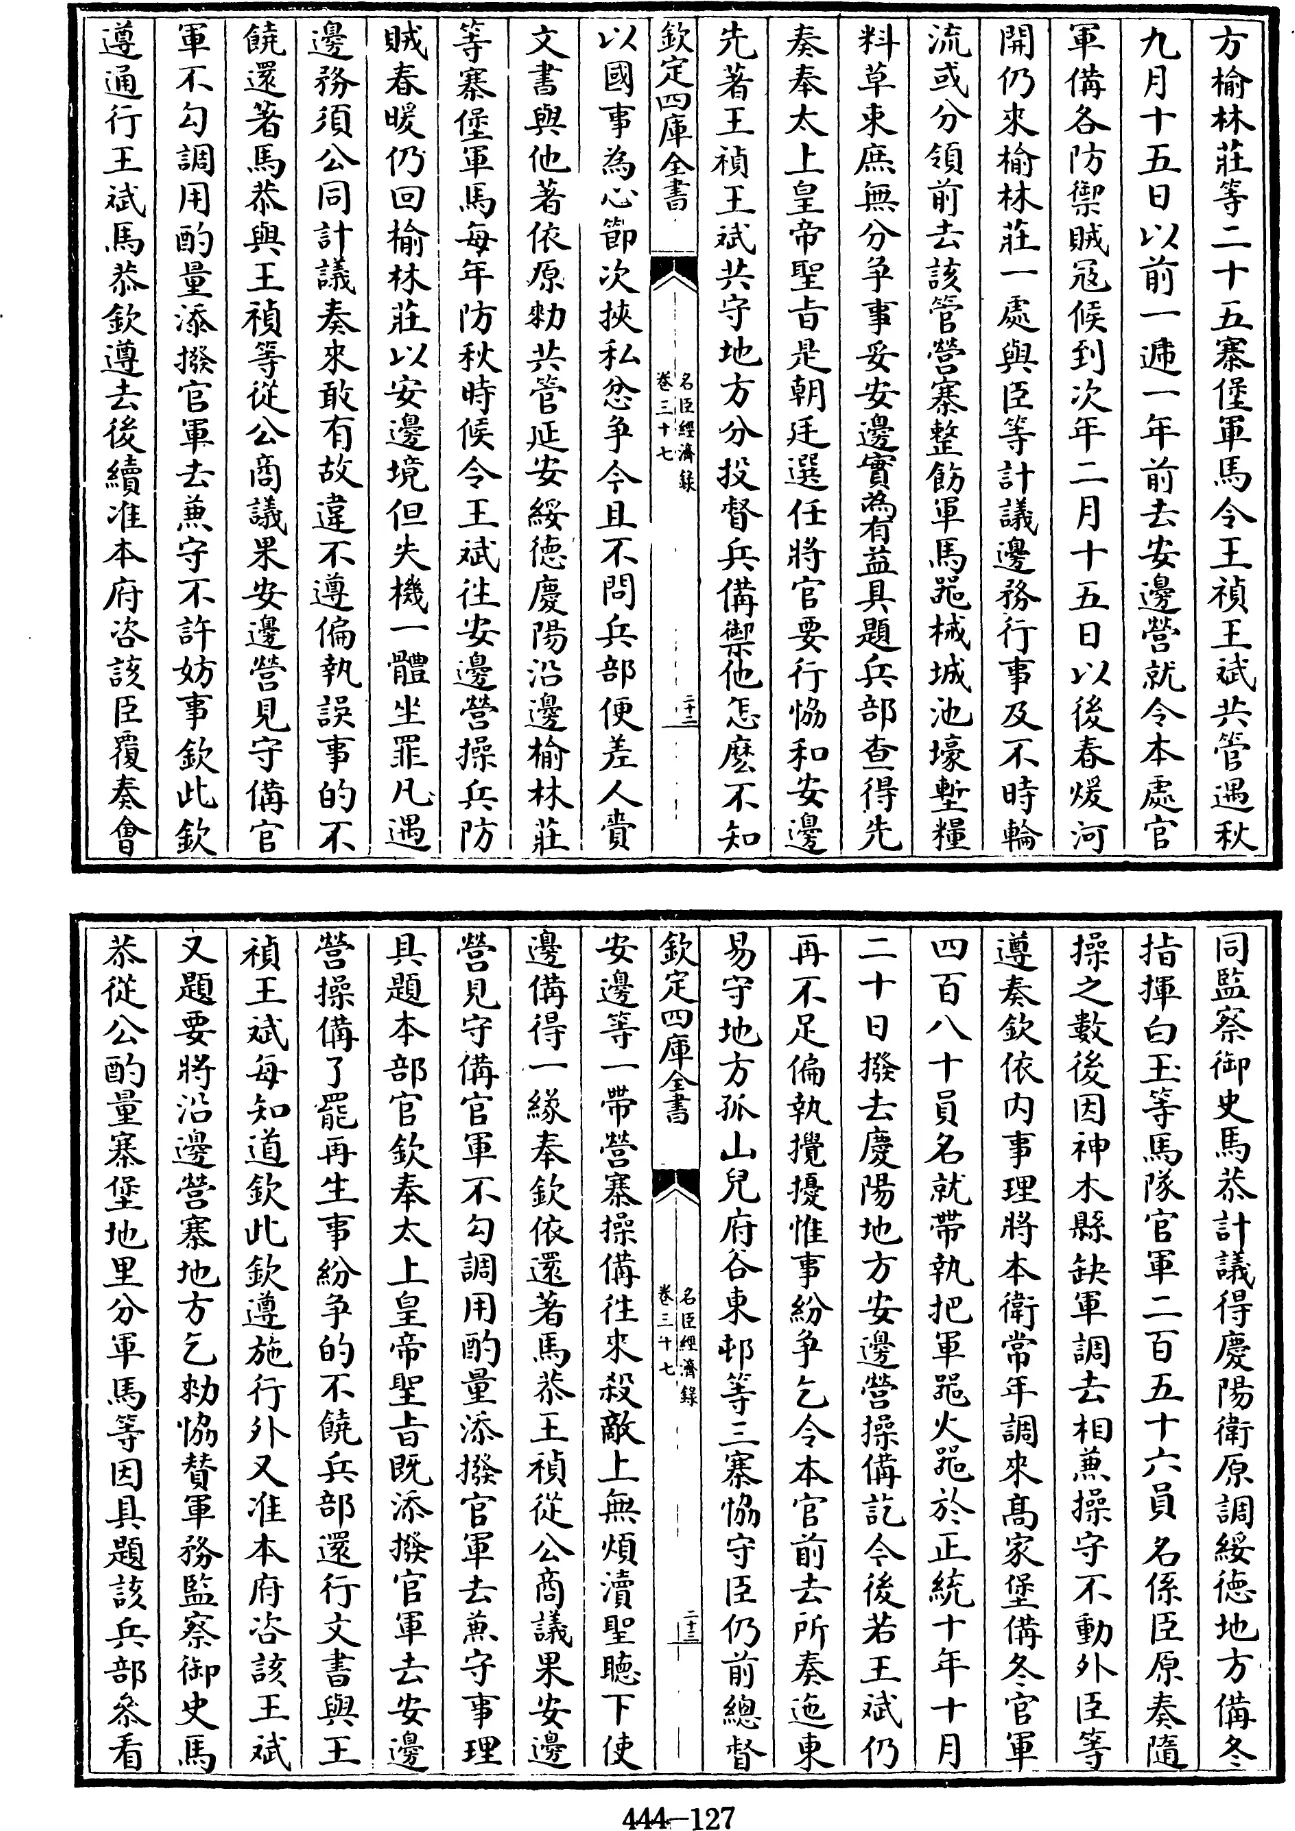 方榆林莊等二十五寨堡軍馬令王禎王斌共管遇秋
九月十五日以前一遞一年前去安邊營就令本處官
軍備各防禦賊冦候到次年二月十五日以後春煖河
開仍來榆林莊一處與臣等計議邊務行事及不時輪
流或分領前去該管營寨整飭軍馬噐械城池壕塹糧
料草束庶無分爭事妥安邊實為有益具題兵部查得先
奏奉太上皇帝聖旨是朝廷選任將官要行恊和安邊
先著王禎王斌共守地方分投督兵備禦他怎麽不知
欽定四庫全書
名臣經濟録
卷三十七
二十二
以國事為心節次挾私忿爭今且不問兵部便差人賫
文書與他著依原勅共管延安綏德慶陽沿邊榆林莊
等寨堡軍馬每年防秋時候令王斌徃安邊營操兵防
賊春暖仍回榆林莊以安邊境但失機一體坐罪凡遇
邊務須公同計議奏來敢有故違不遵偏執誤事的不
饒還著馬恭與王禎等從公商議果安邊營見守備官
軍不勾調用酌量添撥官軍去兼守不許妨事欽此欽
遵通行王斌馬恭欽遵去後續准本府咨該臣覆奏會
同監察御史馬恭計議得慶陽衛原調綏徳地方備冬
指揮白玉等馬隊官軍二百五十六員名係臣原奏隨
操之數後因神木縣缺軍調去相兼操守不動外臣等
遵奏欽依内事理將本衛常年調來髙家堡備冬官軍
四百八十員名就帶執把軍噐火噐於正統十年十月
二十日撥去慶陽地方安邊營操備訖今後若王斌仍
再不足偏執攪擾惟事紛爭乞令本官前去所奏迤東
易守地方孤山兒府谷東邨等三寨恊守臣仍前總督
欽定四庫全書
名臣經濟録
卷三十七
二十三
安邊等一帶營寨操備徃來殺敵上無煩瀆聖聽下使
邊備得一緣奉欽依還著馬恭王禎從公商議果安邊
營見守備官軍不勾調用酌量添撥官軍去兼守事理
具題本部官欽奉太上皇帝聖旨既添撥官軍去安邊
營操備了罷再生事紛爭的不饒兵部還行文書與王
禎王斌每知道欽此欽遵施行外又准本府咨該王斌
又題要將沿邊營寨地方乞勅恊賛軍務監察御史馬
恭從公酌量寨堡地里分軍馬等因具題該兵部叅看
444—127